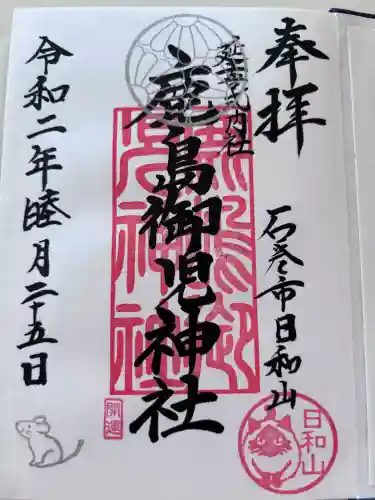 奉拝
石巻市日和山
延喜式内社
鹿島御児神社
令和二年睦月二十五日
鹿島御児神社
開運
日和山